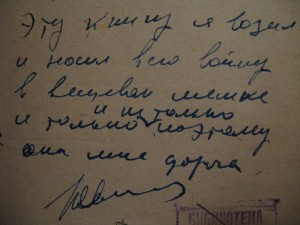 Эту книгу я возил
и носил всю войну
в вещевом мешке
и не только
и только поэтому
она мне дорога
БИБЛИОТЕКА